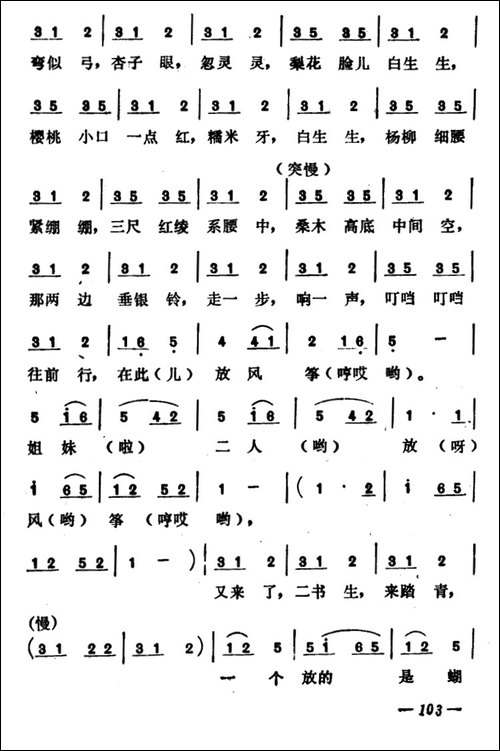 3 1 2 | 3 1 2 | 3 1 2 | 3 5 3 5 | 3 1 2 |
弯似 弓，杏子 眼，忽灵 灵，梨花 脸儿 白生 生，
3 5 3 5 | 3 1 2 | 3 1 2 | 3 1 2 | 3 5 3 5
樱桃 小口 一点 红，糯米 牙，白生 生，杨柳 细腰
（突慢）
3 1 2 | 3 5 3 5 | 3 1 2 | 3 5 3 5 | 3 1 2
紧绷 绷，三尺 红绫 系腰 中，桑木 高底 中间 空，
3 1 2 | 3 1 2 | 3 1 2 | 3 1 2 | 3 5 3 5
那两 边 垂银 铃，走一 步，响一 声，叮当 叮当
3 1 2 | 1 6 5 | 4 4 1 | 2 1 6 | 5 －
往前 行，在此（儿）放风 筝（哼哎 哟）。
5 i 6 | 5 4 2 | 5 i 6 | 5 4 2 | 1 · 1
姐 妹 （啦） 二 人 （哟） 放（呀）
i 6 5 | 1 2 5 2 | 1 － | （1 · 2 | i 6 5
风（哟） 筝 （哼哎 哟），
1 2 5 2 | 1 －） | 3 1 2 | 3 1 2 | 3 1 2
又来 了，二书 生，来踏 青，
（慢）
（3 1 2 2 | 3 1 2） | 1 2 5 | 5 i 6 5 | 1 2 5
一 个 放的 是 蝴
— 103 —